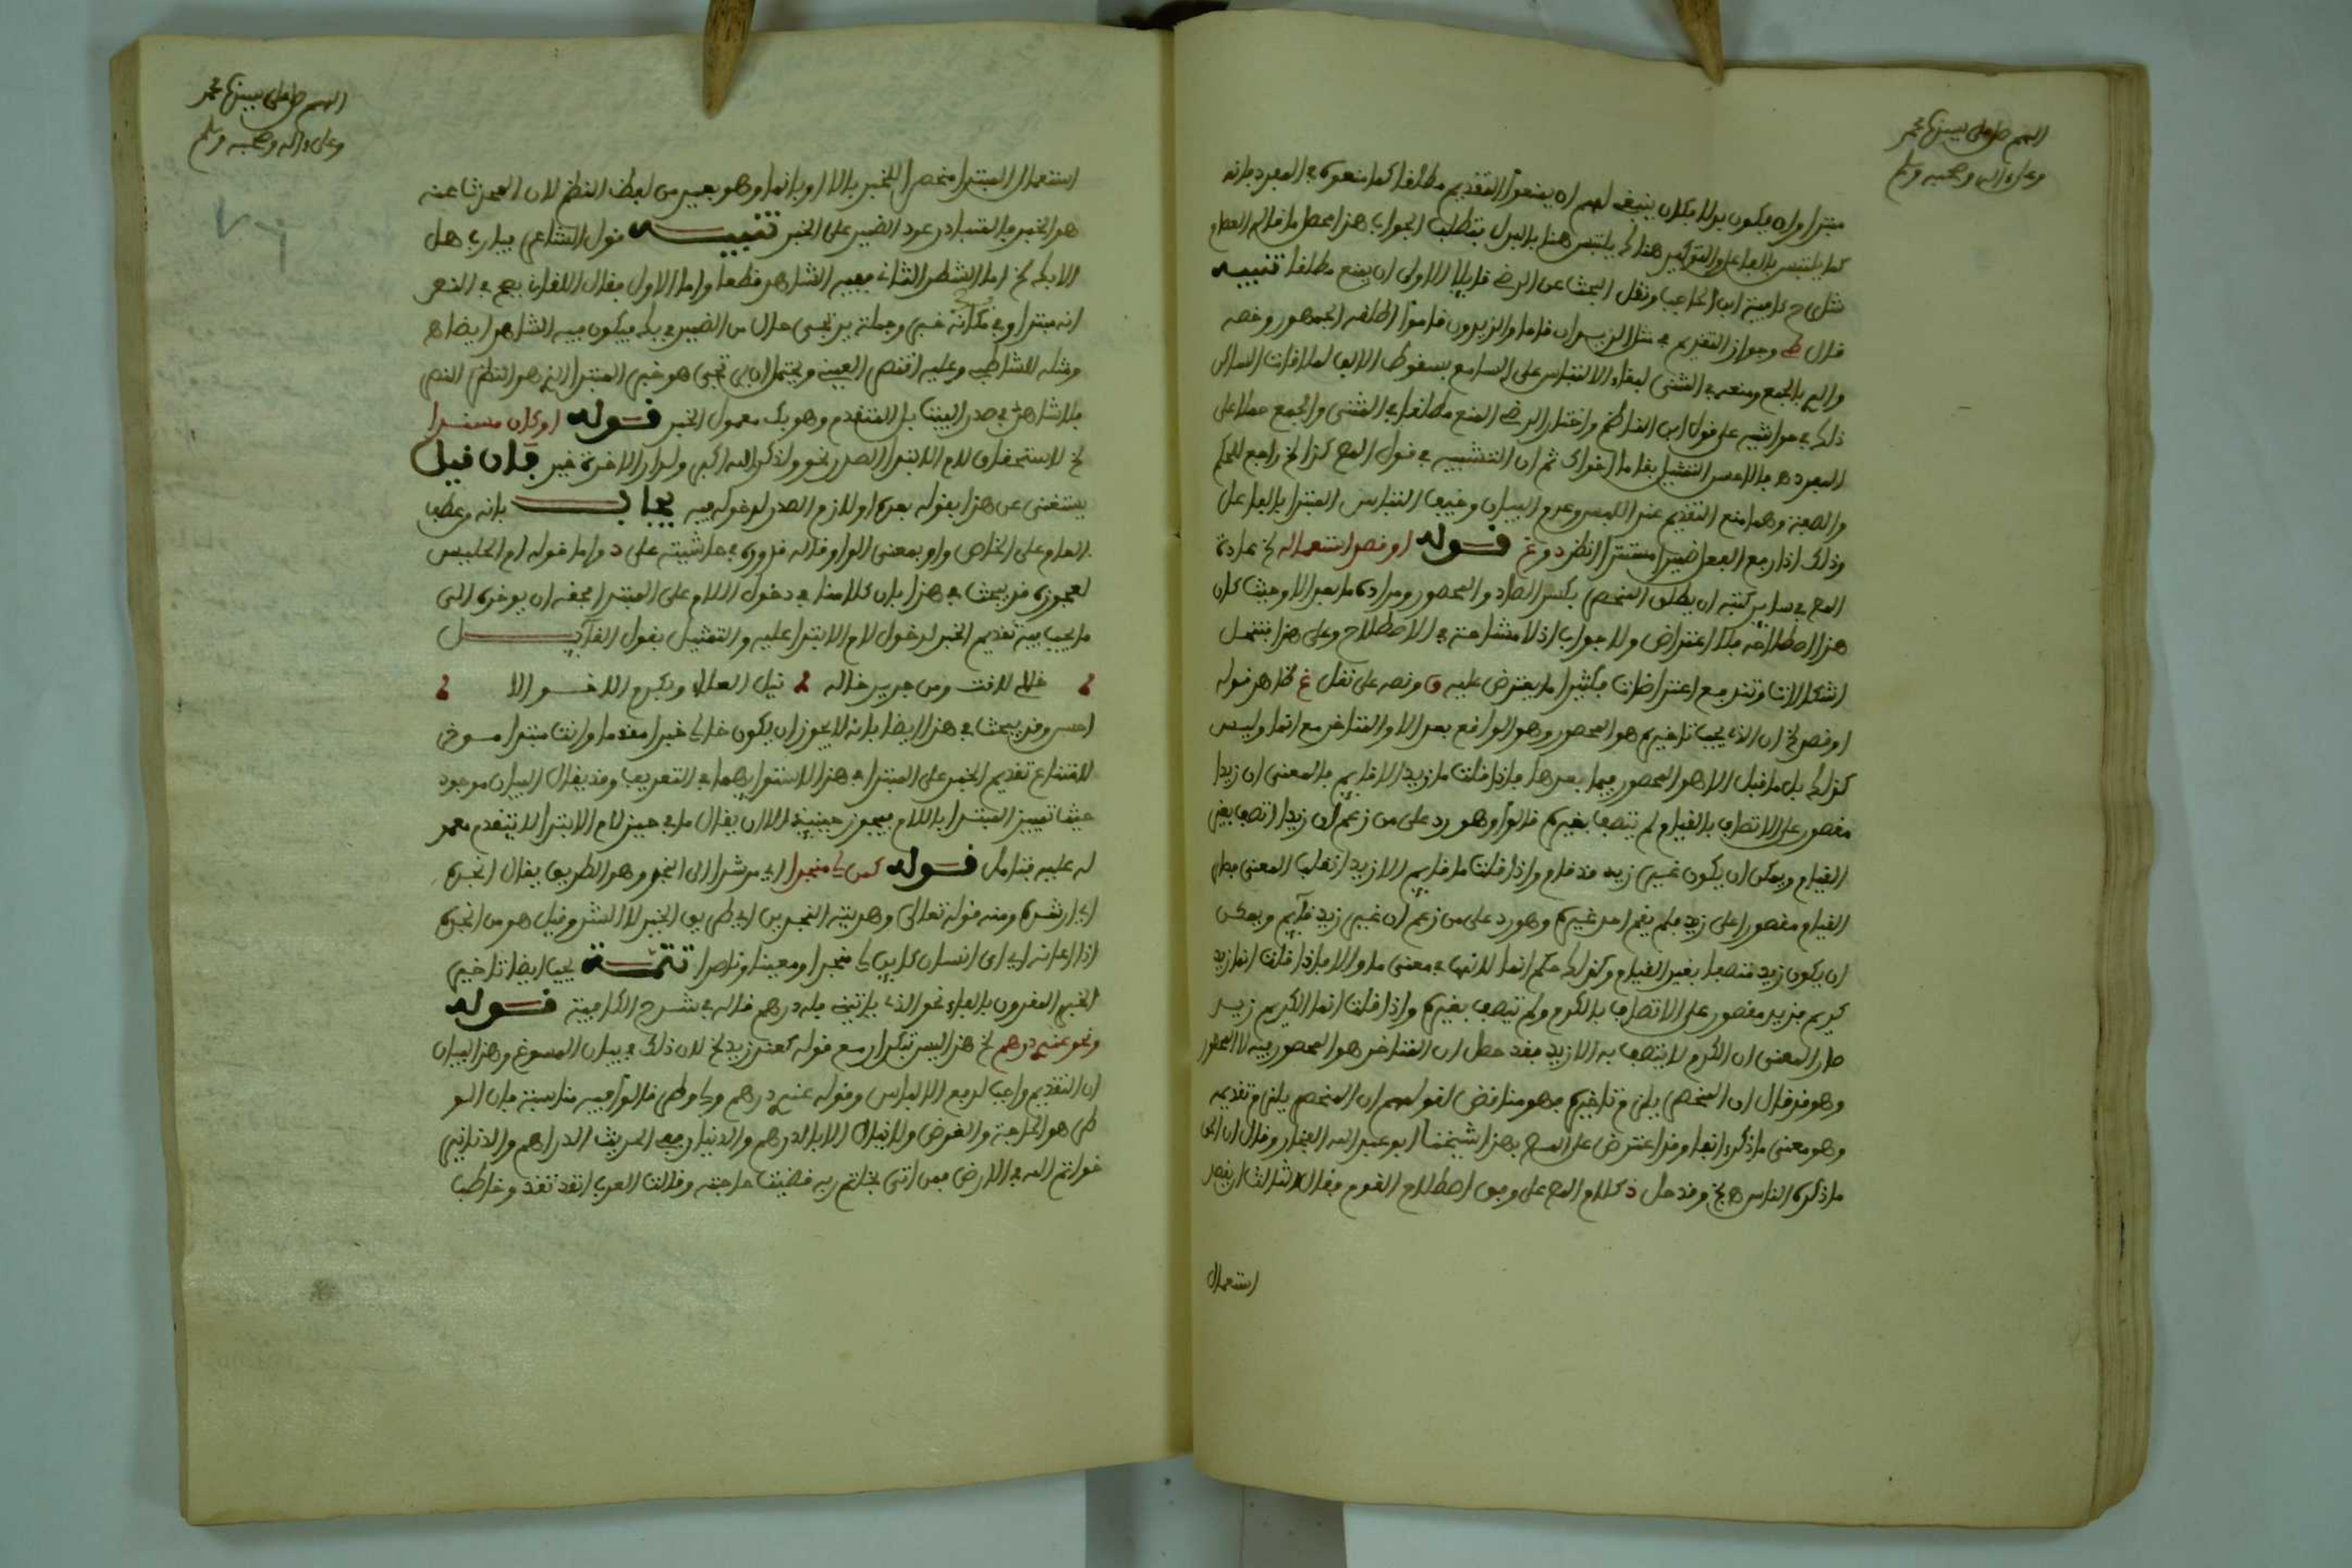 اللهم صل على سيدنا محمد
وعلى ءاله وصحبه وسلم
مبتدا وان يكون بدلا فكان ينبغي لهم ان يمنعوا التقديم مطلقا كما منعوه في المفرد فانه
كما يلتبس بالفاعل والتوكيد هناك يلتبس هنا بالبدل فتطلب الجواب هذا محصل ما قاله العصام
في كافية ابن الحاجب ونقل البحث عن الرضي قايلا الاولى ان يمنع مطلقا تنبيه
قال وجواز التقديم في مثل الزيدان قاما والزيدون قاموا اطلقه الجمهور وخصه
والدي بالجمع ومنعه في المثنى لبقاء الالتباس على السامع بسقوط الالف لملاقاة الساكن
ذلك في حواشيه على قول ابن الناظم واختار الرضي المنع مطلقا في المثنى والجمع حملا على
المفرد هـ فالاحسن التمثيل بقاما اخواك ثم ان التشبيه في قول المص كذا لخ راجع للحكم
والصفة وهما منع التقديم عند اللبس وعدم البيان وخيف التباس المبتدا بالفاعل
وذلك اذا رفع الفعل ضميرا مستترا انظر د و غ قوله او قصد استعماله لخ عادة
المص في ساير كتبه ان يطلق المنحصر بكسر الصاد والمحصور ومراده ما بعد الا وحيث كان
هذا اصطلاحه فلا اعتراض ولا جواب اذ لا مشاحة في الاصطلاح وعلى هذا ينحل
اشكالات وتندفع اعتراضات فكثيرا ما يعترض عليه ق ونصه على نقل غ ظاهر قوله
او قصد لخ ان الذي يجب تاخيره هو المحصور وهو الواقع بعد الا والمتاخر مع انما وليس
كذلك بل ما قبل الا هو المحصور فيما بعدها فاذا قلت ما زيد الا قايم فالمعنى ان زيدا
مقصور على الاتصاف بالقيام لم يتصف بغيره قالوا وهو رد على من زعم ان زيدا اتصف بغير
القيام ويمكن ان يكون غير زيد قد قام واذا قلت ما قايم الا زيد انقلب المعنى فصار
القيام مقصورا على زيد فلم يقم احد غيره وهو رد على من زعم ان غير زيد قايم ويمكن
ان يكون زيد متصفا بغير القيام وكذلك حكم انما لانها في معنى ما والا فاذا قلت انما زيد
كريم فزيد مقصور على الاتصاف بالكرم ولم يتصف بغيره واذا قلت انما الكريم زيد
صار المعنى ان الكرم لا يتصف به الا زيد فقد حصل ان المتاخر هو المحصور فيه لا المحصور
وهو قد قال ان المنحصر يلزم تاخيره فهو مناقض لقولهم ان المنحصر يلزم تقديمه
وهو معنى ما ذكر انفا وقد اعترض على المص بهذا شيخنا ابو عبد الله الفخار وقال ان الحق
ما ذكره الناس هـ لخ وقد حل د كلام المص على وفق اصطلاح القوم فقال الثالث ان يقصد
استعمال
اللهم صل على سيدنا محمد
وعلى ءاله وصحبه وسلم
استعمال المبتدا منحصرا للخبر بالا او بانما وهو بعيد من لفظ النظم لان المحدث عنه
هو الخبر فالمتبادر عود الضمير على الخبر تنبيه قول الشاعر فيارب هل
الا بك لخ اما الشطر الثاني ففيه الشاهد قطعا واما الاول فقال اللقاني يصح في النصر
انه مبتدا وبك خبره وجملة يرتجى حال من الضمير في بك فيكون فيه الشاهد ايضا هـ
ومثله للشاطبي وعليه اقتصر العيني ويحتمل ان يرتجى هو خبر المبتدا الذي هو النصر
فلا شاهد في صدر البيت بل المتقدم وهو بك معمول الخبر قوله او كان مسندا
لخ لاستحقاق لام الابتدا الصدر نحو ولذكر الله اكبر ولدار الاخرة خير فان قيل
يستغنى عن هذا بقوله بعده او لازم الصدر لدخوله فيه يجاب بانه من عطف
العام على الخاص واو بمعنى الواو قاله في حاشيته على د واما قوله ام الحليس
لعجوزه فيبحث في هذا بان كلامنا في دخول اللام على المبتدا فحقه ان يوخره الى
ما يجب فيه تقديم الخبر لدخول لام الابتدا عليه والتمثيل بقول القايل
خالي لانت ومن جرير خاله ؛ ينل العلاء ويكرم الاخوالا
احسن وقد يبحث في هذا ايضا بانه لا يجوز ان يكون خالي خبرا مقدما وانت مبتدا موخر
لامتناع تقديم الخبر على المبتدا في هذا لاستوايهما في التعريف وقد يقال البيان موجود
حيث تميز المبتدا باللام فيجوز حينيذ الا ان يقال ما في حيز لام الابتدا لا يتقدم معمو
له عليه فتامل قوله كمن لي منجدا اي مرشدا الى النجد وهو الطريق يقال انجده
اي ارشده ومنه قوله تعالى وهديناه النجدين اي طريق الخير والشر وقيل هو من انجده
اذا اعانه اي اي انسان كاين لي منجدا ومعينا وناصرا تتمة يجب ايضا تاخير
الخبر المقرون بالفاء نحو الذي ياتيني فله درهم قاله في شرح الكافية قوله
ونحو عندي درهم لخ هذا ليس تكرارا مع قوله كعند زيد لخ لان ذلك في بيان المسوغ وهذا لبيان
ان التقديم واجب لدفع الالباس وقوله عندي درهم ولي وطر قالوا فيه مناسبة فان الو
طر هو الحاجة والغرض ولا ينال الا بالدرهم والدينار وفي الحديث الدراهم والدنانير
خواتم الله في الارض فمن اتى بخاتم ربه قضيت حاجته وقالت العرب انقد تنقد وخاطب